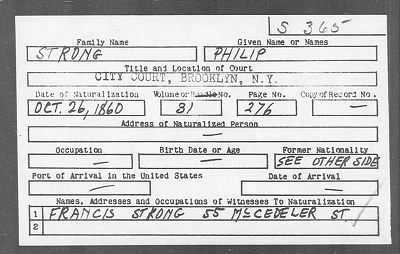 S 365
Family Name Given Name or Names
STRONG PHILIP
Title and Location of Court
CITY COURT, BROOKLYN, N.Y.
Date of Naturalization Volume or Bundle No. Page No. Copy of Record No.
OCT. 26, 1860 31 276 —
Address of Naturalized Person
—
Occupation Birth Date or Age Former Nationality
— — SEE OTHER SIDE
Port of Arrival in the United States Date of Arrival
— —
Names, Addresses and Occupations of Witnesses To Naturalization
1 FRANCIS STRONG 55 McCEDELER ST.
2